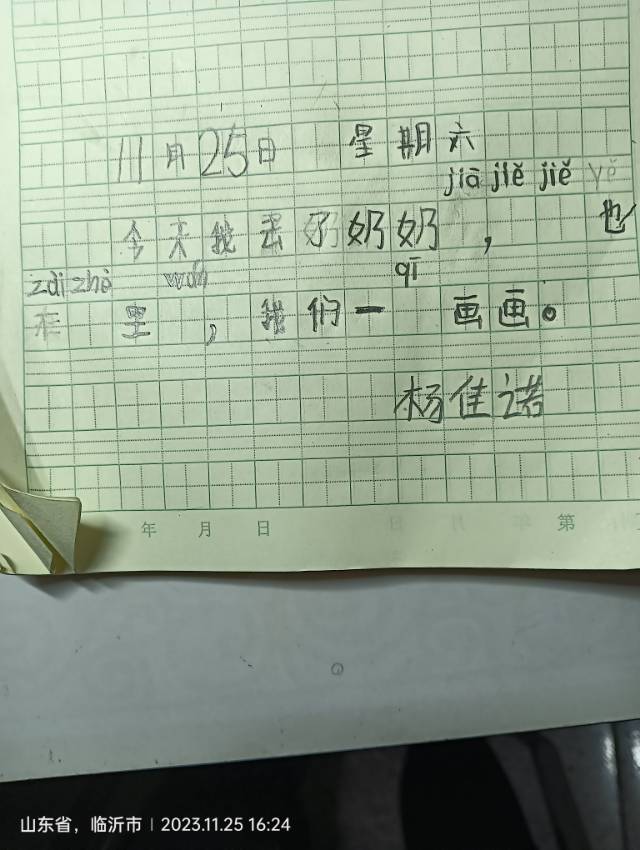 11月25日 星期六
jiā jiě jiě yě
今天我去了奶奶, 也
zài zhè wán qī
在 里, 我们一 画画。
杨佳诺
年 月 日 第
山东省，临沂市 | 2023.11.25 16:24